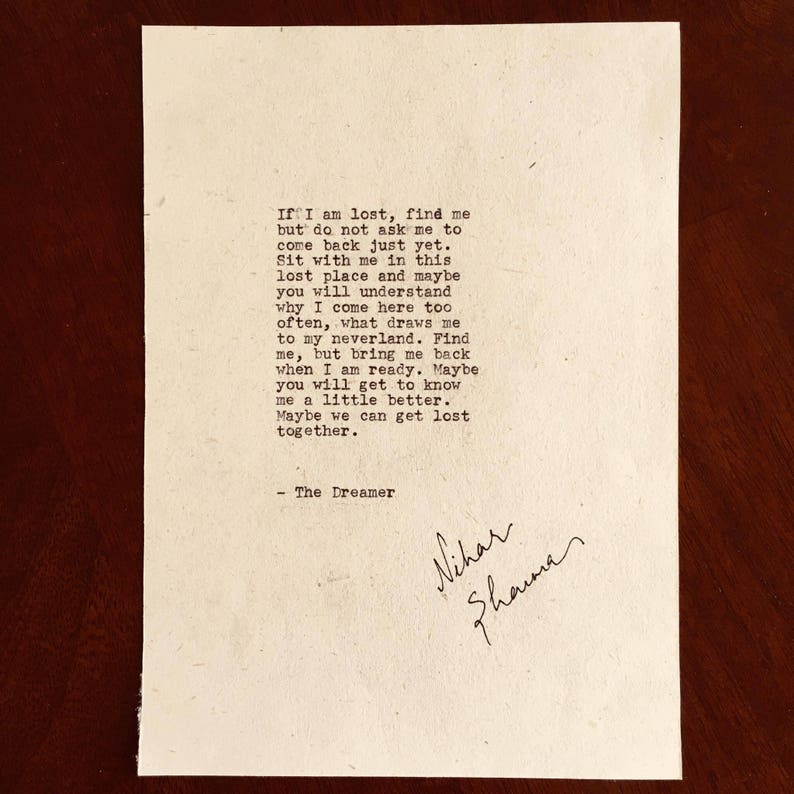 If I am lost, find me
but do not ask me to
come back just yet.
Sit with me in this
lost place and maybe
you will understand
why I come here too
often, what draws me
to my neverland. Find
me, but bring me back
when I am ready. Maybe
you will get to know
me a little better.
Maybe we can get lost
together.
- The Dreamer
Nihar
Sharma